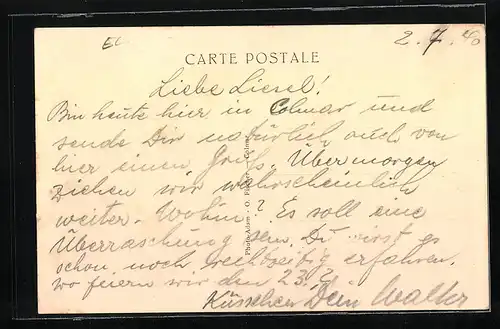 EL
2. 7. 40
CARTE POSTALE
Liebe Liesel!
Bin heute hier in Colmar und
sende Dir natürlich auch von
hier einen Gruß. Übermorgen
ziehen wir wahrscheinlich
weiter. Wohin? Es soll eine
Überraschung sein. Du wirst es
schon noch rechtzeitig erfahren,
wo feiern wir den 23.?
Küsschen Dein Walter
Photo-Adam - O. Colmar